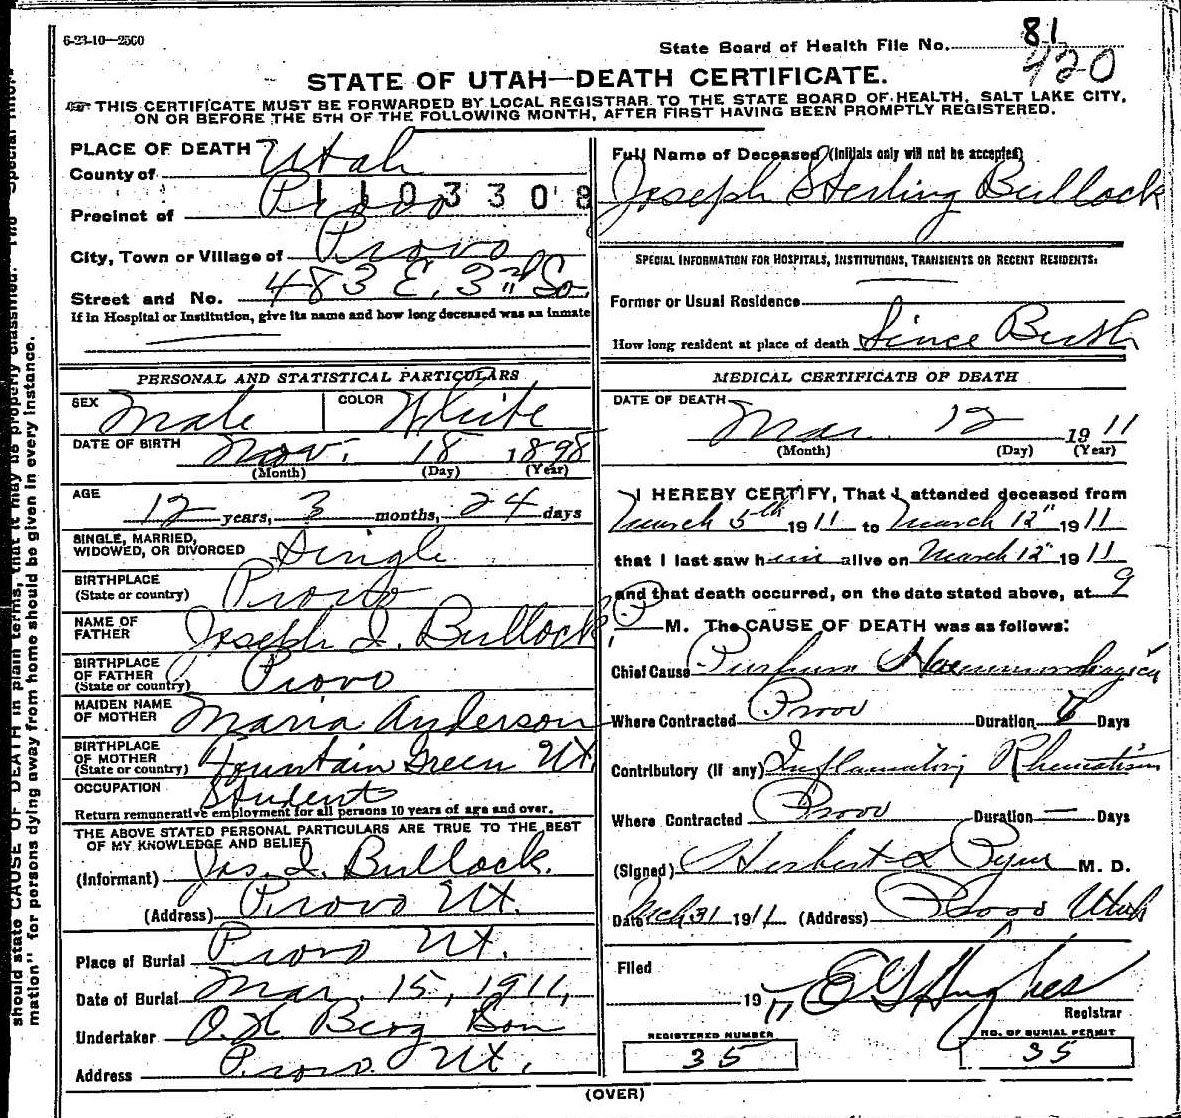 6-23-10—2500
State Board of Health File No. 81
420
STATE OF UTAH—DEATH CERTIFICATE.
THIS CERTIFICATE MUST BE FORWARDED BY LOCAL REGISTRAR TO THE STATE BOARD OF HEALTH, SALT LAKE CITY,
ON OR BEFORE THE 5TH OF THE FOLLOWING MONTH, AFTER FIRST HAVING BEEN PROMPTLY REGISTERED.
PLACE OF DEATH
County of Utah
1103308
Precinct of Provo
City, Town or Village of Provo
Street and No. 483 E. 3rd So.
If in Hospital or Institution, give its name and how long deceased was an inmate
Full Name of Deceased (Initials only will not be accepted)
Joseph Sterling Bullock
SPECIAL INFORMATION FOR HOSPITALS, INSTITUTIONS, TRANSIENTS OR RECENT RESIDENTS:
Former or Usual Residence
How long resident at place of death Since Birth
PERSONAL AND STATISTICAL PARTICULARS
SEX Male COLOR White
DATE OF BIRTH Nov. 18 1898
(Month) (Day) (Year)
AGE
12 years, 3 months, 24 days
SINGLE, MARRIED,
WIDOWED, OR DIVORCED Single
BIRTHPLACE
(State or country) Provo
NAME OF
FATHER Joseph I. Bullock
BIRTHPLACE
OF FATHER
(State or country) Provo
MAIDEN NAME
OF MOTHER Maria Anderson
BIRTHPLACE
OF MOTHER
(State or country) Fountain Green Ut.
OCCUPATION Student
Return remunerative employment for all persons 10 years of age and over.
THE ABOVE STATED PERSONAL PARTICULARS ARE TRUE TO THE BEST
OF MY KNOWLEDGE AND BELIEF
(Informant) Jos. I. Bullock.
(Address) Provo Ut.
Place of Burial Provo Ut.
Date of Burial Mar. 15, 1911,
Undertaker O.H. Berg Son
Address Provo Ut.
MEDICAL CERTIFICATE OF DEATH
DATE OF DEATH
Mar. 12 1911
(Month) (Day) (Year)
I HEREBY CERTIFY, That I attended deceased from
March 5th 1911 to March 12" 1911
that I last saw him alive on March 12" 1911
and that death occurred, on the date stated above, at 9
P M. The CAUSE OF DEATH was as follows:
Chief Cause Purpura Haemorrhagica
Where Contracted Provo Duration 7 Days
Contributory (if any) Inflamatory Rhematism
Where Contracted Provo Duration — Days
(Signed) Herbert S Pyne M. D.
Date Mch 31 1911 (Address) Provo Utah
Filed
19 E G Hughes
Registrar
REGISTERED NUMBER
35
NO. OF BURIAL PERMIT
35
(OVER)
should state CAUSE OF DEATH in plain terms, that it may be properly classified. The "Special Infor-
mation" for persons dying away from home should be given in every instance.